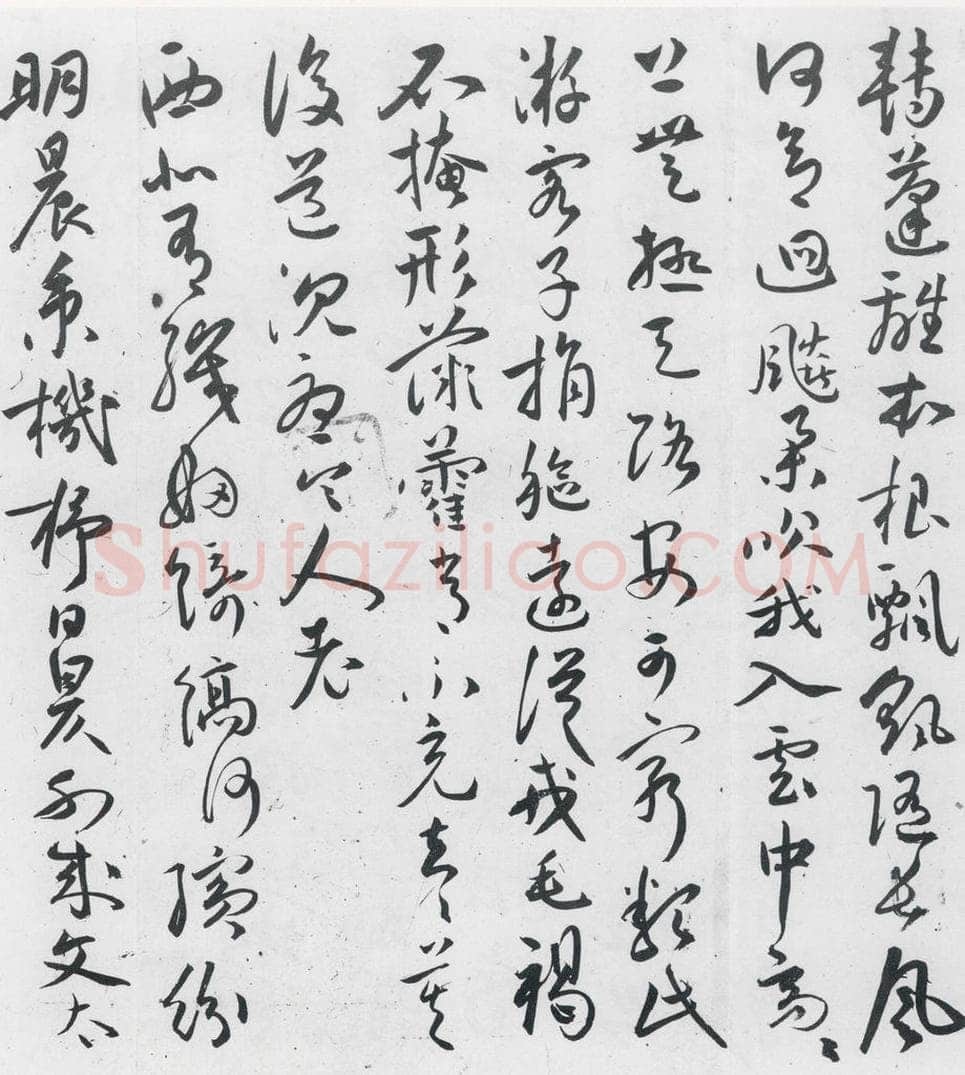 轉蓬離本根飄飖隨長風
何意迴飈舉吹我入雲中高〻
上無極天路安可窮類此
游客子捐軀遠從戎毛褐
不掩形薇藿常不充去〻莫
復道沉憂令人老
西北有織婦綺縞何繽紛
明晨秉機杼日昃不成文太
Shufaziliao.COM